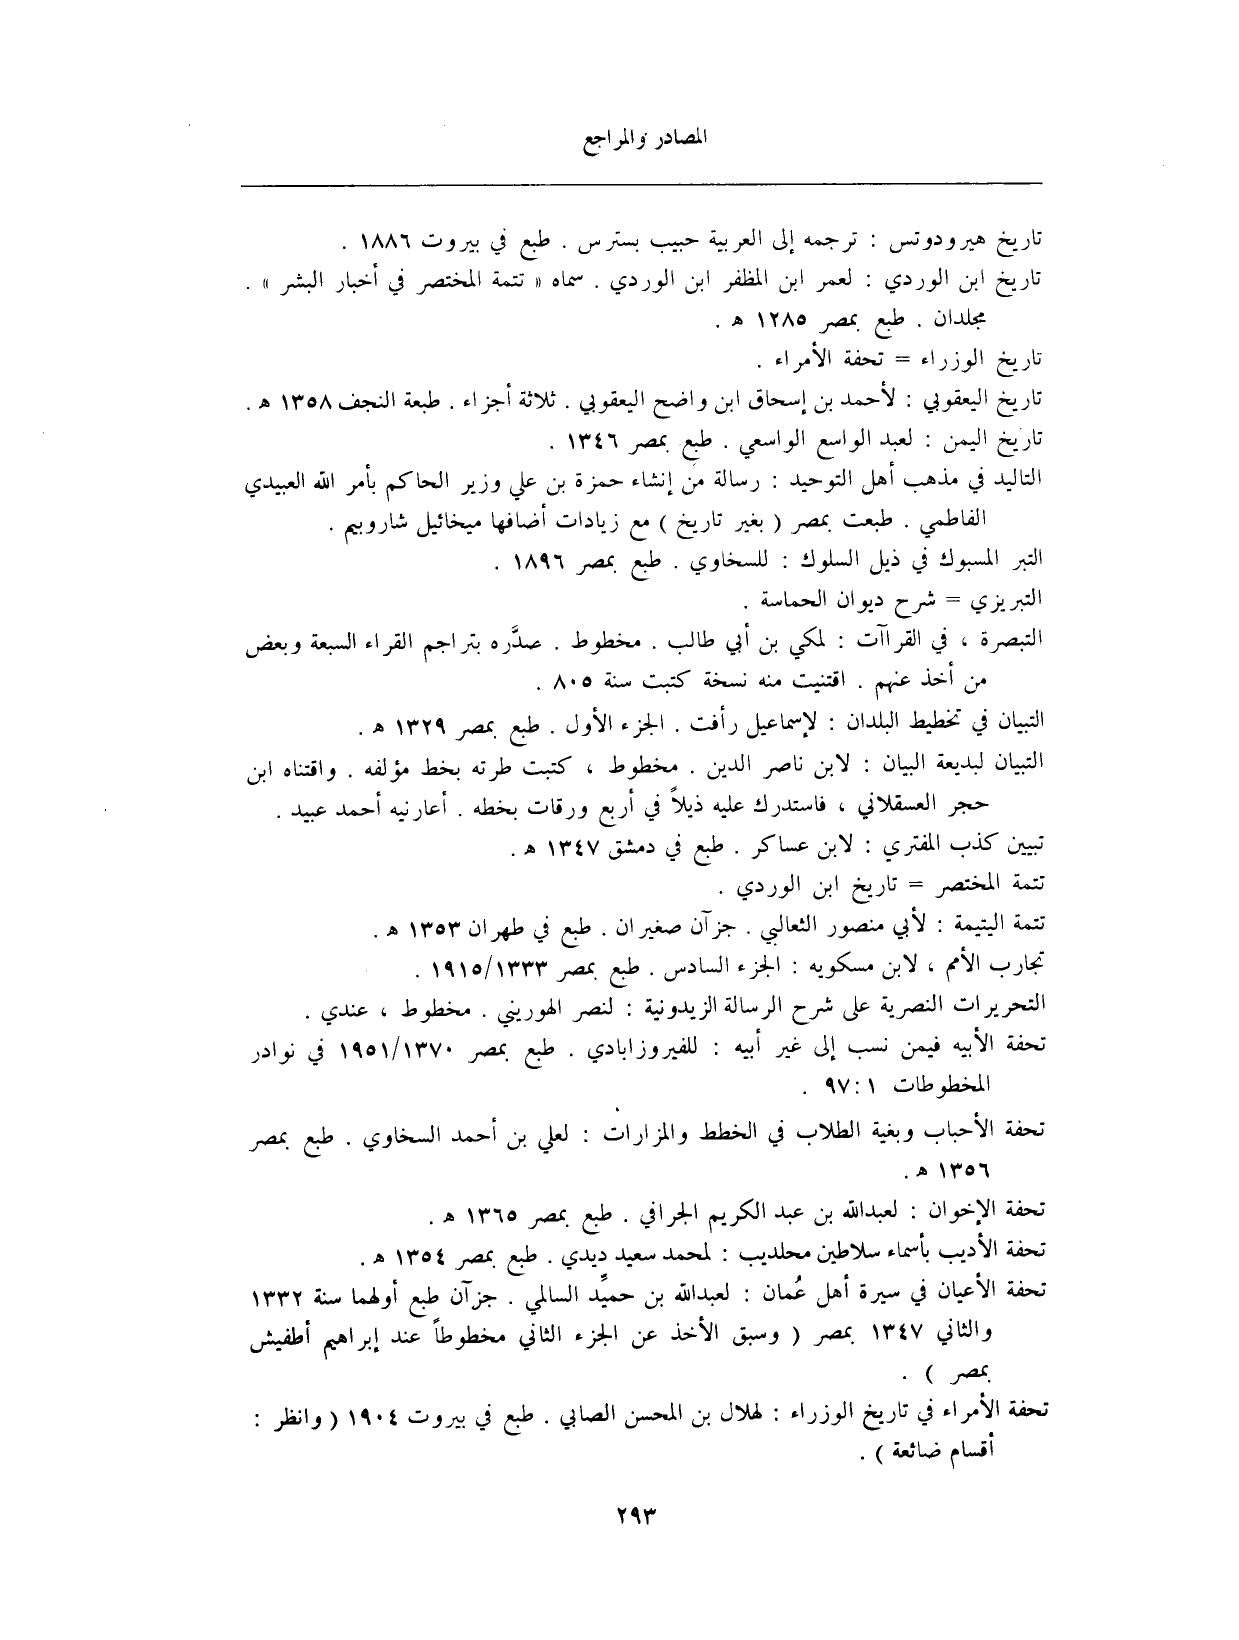 المصادر والمراجع
تاريخ هيرودوتس : ترجمه إلى العربية حبيب بسترس . طبع في بيروت ١٨٨٦ .
تاريخ ابن الوردي : لعمر ابن المظفر ابن الوردي . سماه « تتمة المختصر في أخبار البشر » .
مجلدان . طبع بمصر ١٢٨٥ ه .
تاريخ الوزراء = تحفة الأمراء .
تاريخ اليعقوبي : لأحمد بن إسحاق ابن واضح اليعقوبي . ثلاثة أجزاء . طبعة النجف ١٣٥٨ ه .
تاريخ اليمن : لعبد الواسع الواسعي . طبع بمصر ١٣٤٦ .
التاليد في مذهب أهل التوحيد : رسالة من إنشاء حمزة بن علي وزير الحاكم بأمر الله العبيدي
الفاطمي . طبعت بمصر ( بغير تاريخ ) مع زيادات أضافها ميخائيل شاروبيم .
التبر المسبوك في ذيل السلوك : للسخاوي . طبع بمصر ١٨٩٦ .
التبريزي = شرح ديوان الحماسة .
التبصرة ، في القراآت : لمكي بن أبي طالب . مخطوط . صدَّره بتراجم القراء السبعة وبعض
من أخذ عنهم . اقتنيت منه نسخة كتبت سنة ٨٠٥ .
التبيان في تخطيط البلدان : لإسماعيل رأفت . الجزء الأول . طبع بمصر ١٣٢٩ ه .
التبيان لبديعة البيان : لابن ناصر الدين . مخطوط ، كتبت طرته بخط مؤلفه . واقتناه ابن
حجر العسقلاني ، فاستدرك عليه ذيلاً في أربع ورقات بخطه . أعارنيه أحمد عبيد .
تبيين كذب المفتري : لابن عساكر . طبع في دمشق ١٣٤٧ ه .
تتمة المختصر = تاريخ ابن الوردي .
تتمة اليتيمة : لأبي منصور الثعالبي . جزآن صغيران . طبع في طهران ١٣٥٣ ه .
تجارب الأمم ، لابن مسكويه : الجزء السادس . طبع بمصر ١٩١٥/١٣٣٣ .
التحريرات النصرية على شرح الرسالة الزيدونية : لنصر الهوريني . مخطوط ، عندي .
تحفة الأبيه فيمن نسب إلى غير أبيه : للفيروزابادي . طبع بمصر ١٩٥١/١٣٧٠ في نوادر
المخطوطات ١ : ٩٧ .
تحفة الأحباب وبغية الطلاب في الخطط والمزارات : لعلي بن أحمد السخاوي . طبع بمصر
١٣٥٦ ه .
تحفة الإخوان : لعبدالله بن عبد الكريم الجرافي . طبع بمصر ١٣٦٥ ه .
تحفة الأديب بأسماء سلاطين محلديب : لمحمد سعيد ديدي . طبع بمصر ١٣٥٤ ه .
تحفة الأعيان في سيرة أهل عُمان : لعبدالله بن حميِّد السالمي . جزآن طبع أولهما سنة ١٣٣٢
والثاني ١٣٤٧ بمصر ( وسبق الأخذ عن الجزء الثاني مخطوطاً عند إبراهيم أطفيش
بمصر ) .
تحفة الأمراء في تاريخ الوزراء : لهلال بن المحسن الصابي . طبع في بيروت ١٩٠٤ ( وانظر :
أقسام ضائعة ) .
٢٩٣